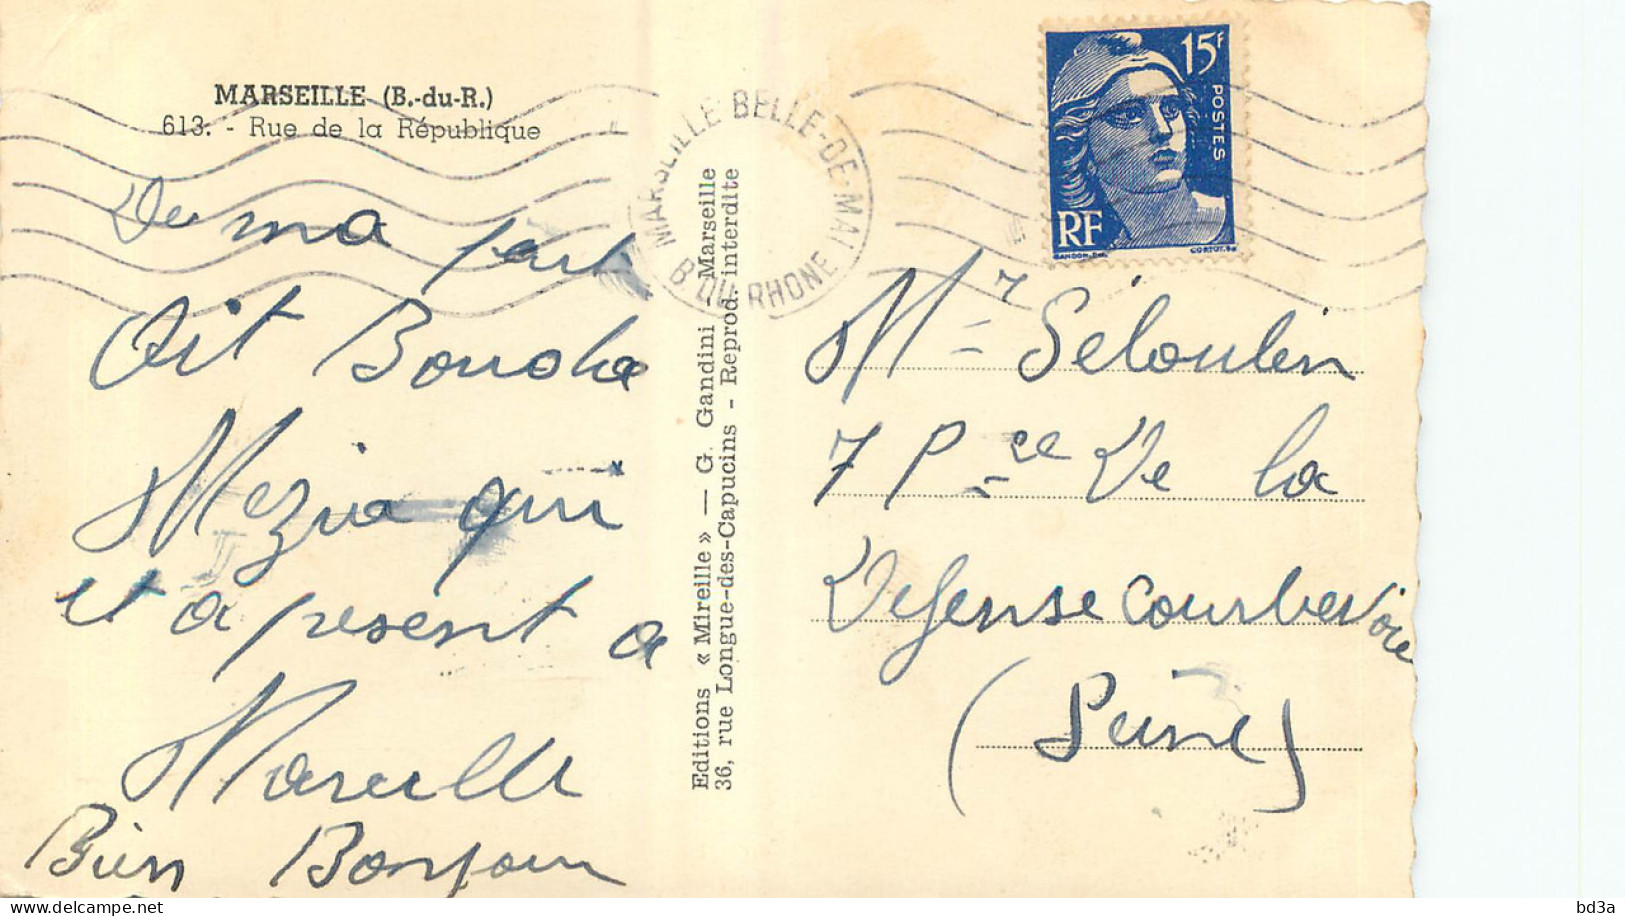 MARSEILLE (B.-du-R.)
613. - Rue de la République
De ma part
Ait Bouda
Mezia qui
et a present a
Marseille
Bien Bonjour
Editions « Mireille » — G. Gandini - Marseille
36, rue Longue-des-Capucins - Reprod. interdite
MARSEILLE BELLE-DE-MAI
B. DU RHONE
15F
POSTES
RF
GANDON.DEL.
CORTOT.SC
Mr Séloulin
7 Pce De la
Defense Courbevoie
(Seine)
bd3a